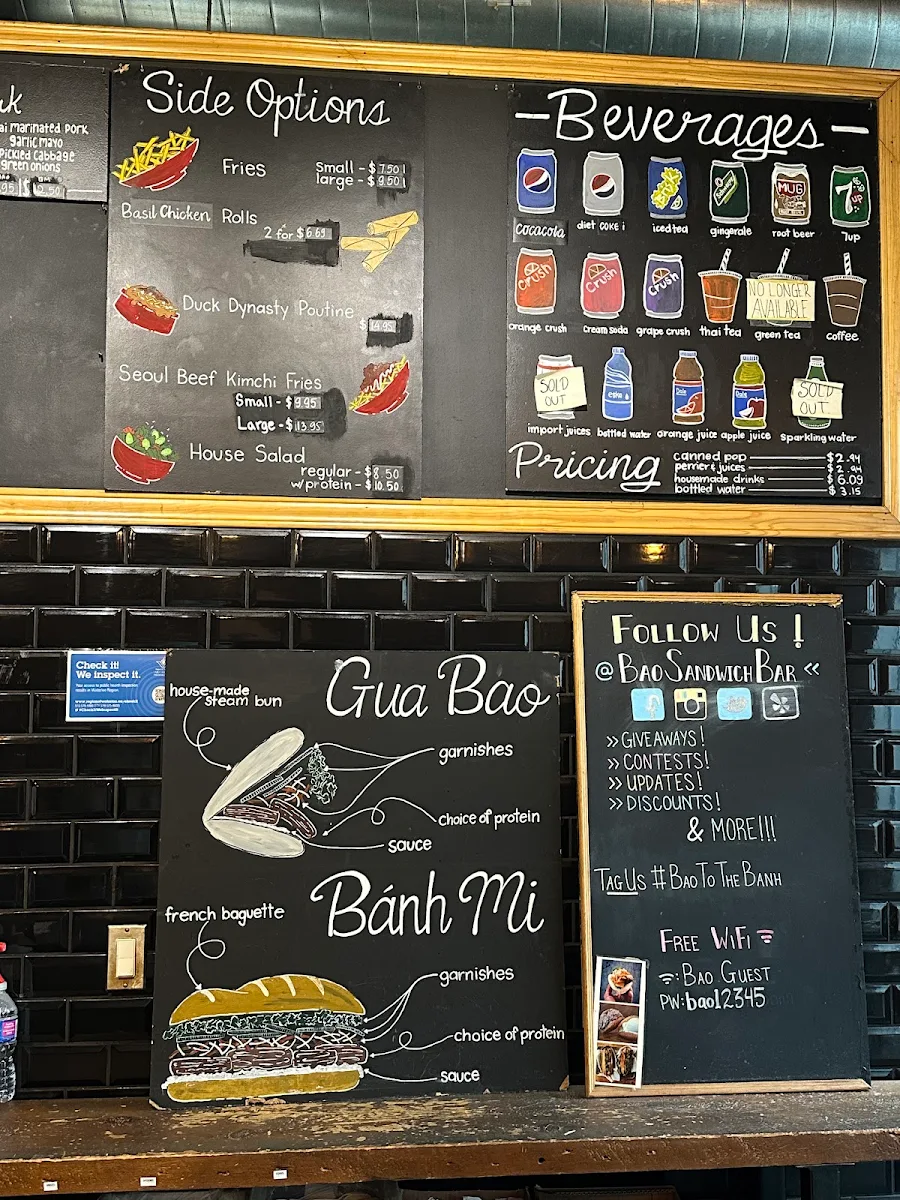 ai marinated pork
garlic mayo
pickled cabbage
green onions
Side Options
Fries
small - $ 7.50
large - $ 9.50
Basil Chicken Rolls
2 for $ 6.69
Duck Dynasty Poutine
$ 14.95
Seoul Beef Kimchi Fries
Small - $ 9.95
Large - $ 13.95
House Salad
regular - $ 8.50
w/protein - $ 10.50
Beverages
cocacola
diet coke
iced tea
gingerale
root beer
7up
MUG
7
orange crush
cream soda
grape crush
thai tea
green tea
coffee
Crush
Crush
Crush
NO LONGER
AVAILABLE
import juices
bottled water
orange juice
apple juice
sparkling water
SOLD
OUT
Dole
Dole
SOLD
OUT
Pricing
canned pop $ 2.94
perrier & juices $ 2.94
housemade drinks $ 6.09
bottled water $ 3.15
Check it!
We inspect it.
Gua Bao
house-made
steam bun
garnishes
choice of protein
sauce
Bánh Mi
french baguette
garnishes
choice of protein
sauce
Follow Us!
@BaoSandwichBar «
» Giveaways!
» Contests!
» Updates!
» Discounts!
& More!!!
Tag Us #BaoToTheBanh
Free WiFi
: Bao Guest
PW: bao12345